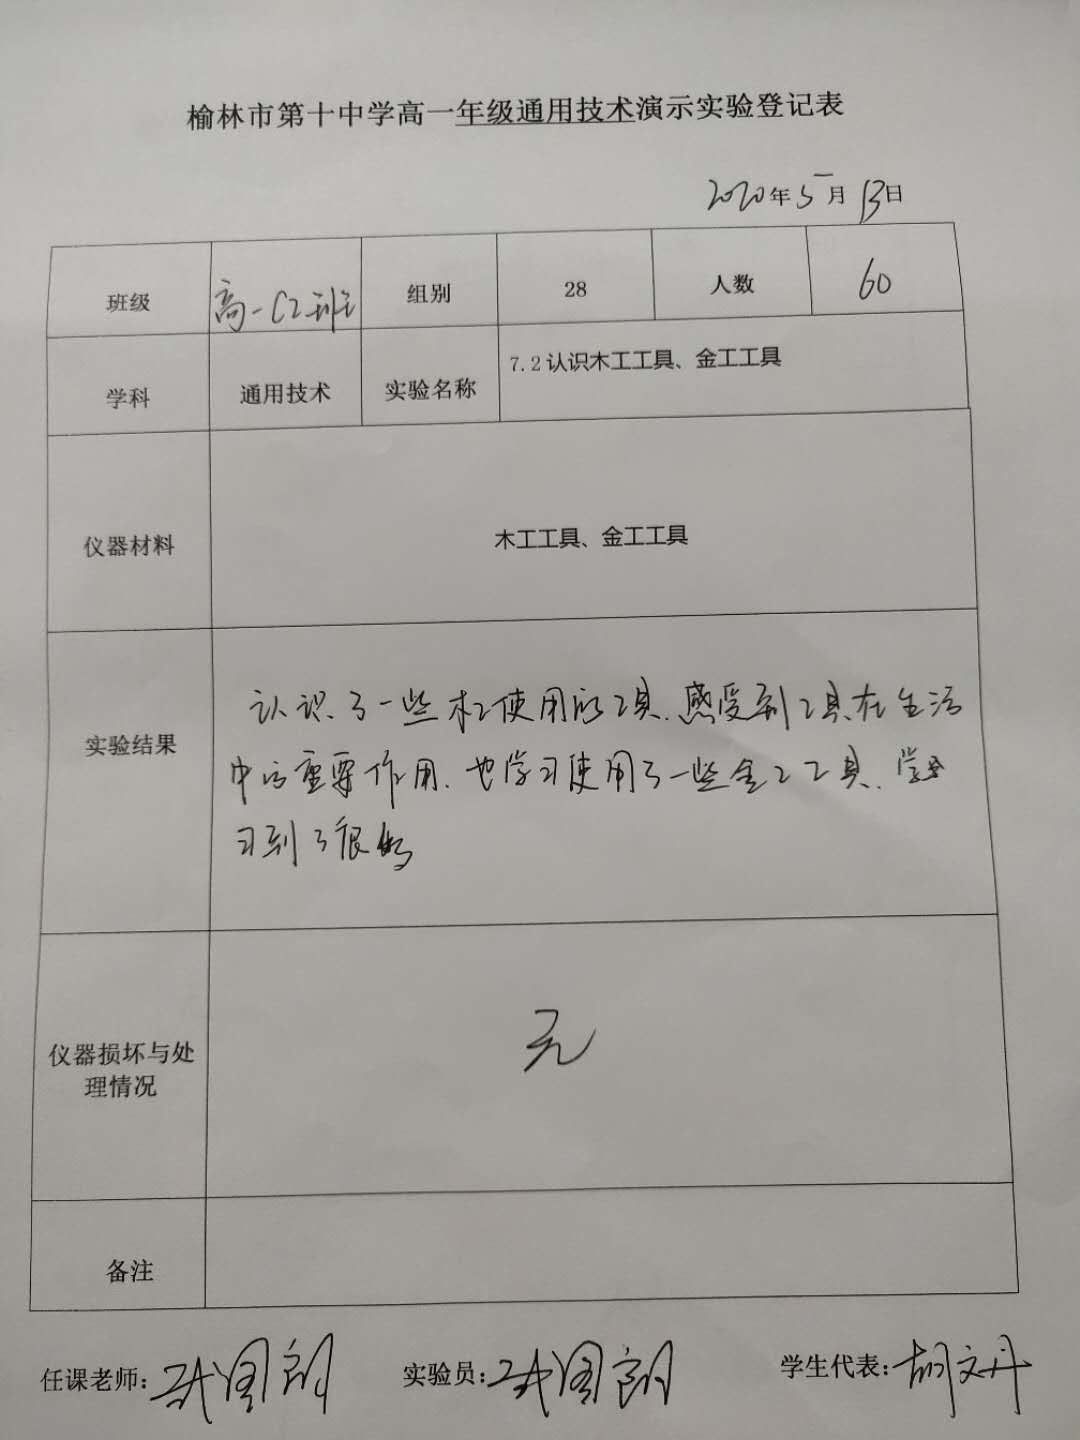 榆林市第十中学高一年级通用技术演示实验登记表
2020年5月13日
班级 高一C2班 组别 28 人数 60
学科 通用技术 实验名称 7.2认识木工工具、金工工具
仪器材料 木工工具、金工工具
实验结果
认识了一些木工使用的工具.感受到工具在生活
中的重要作用.也学习使用了一些金工工具.学
习到了很多
仪器损坏与处
理情况
无
备注
任课老师: 实验员: 学生代表:胡文丹